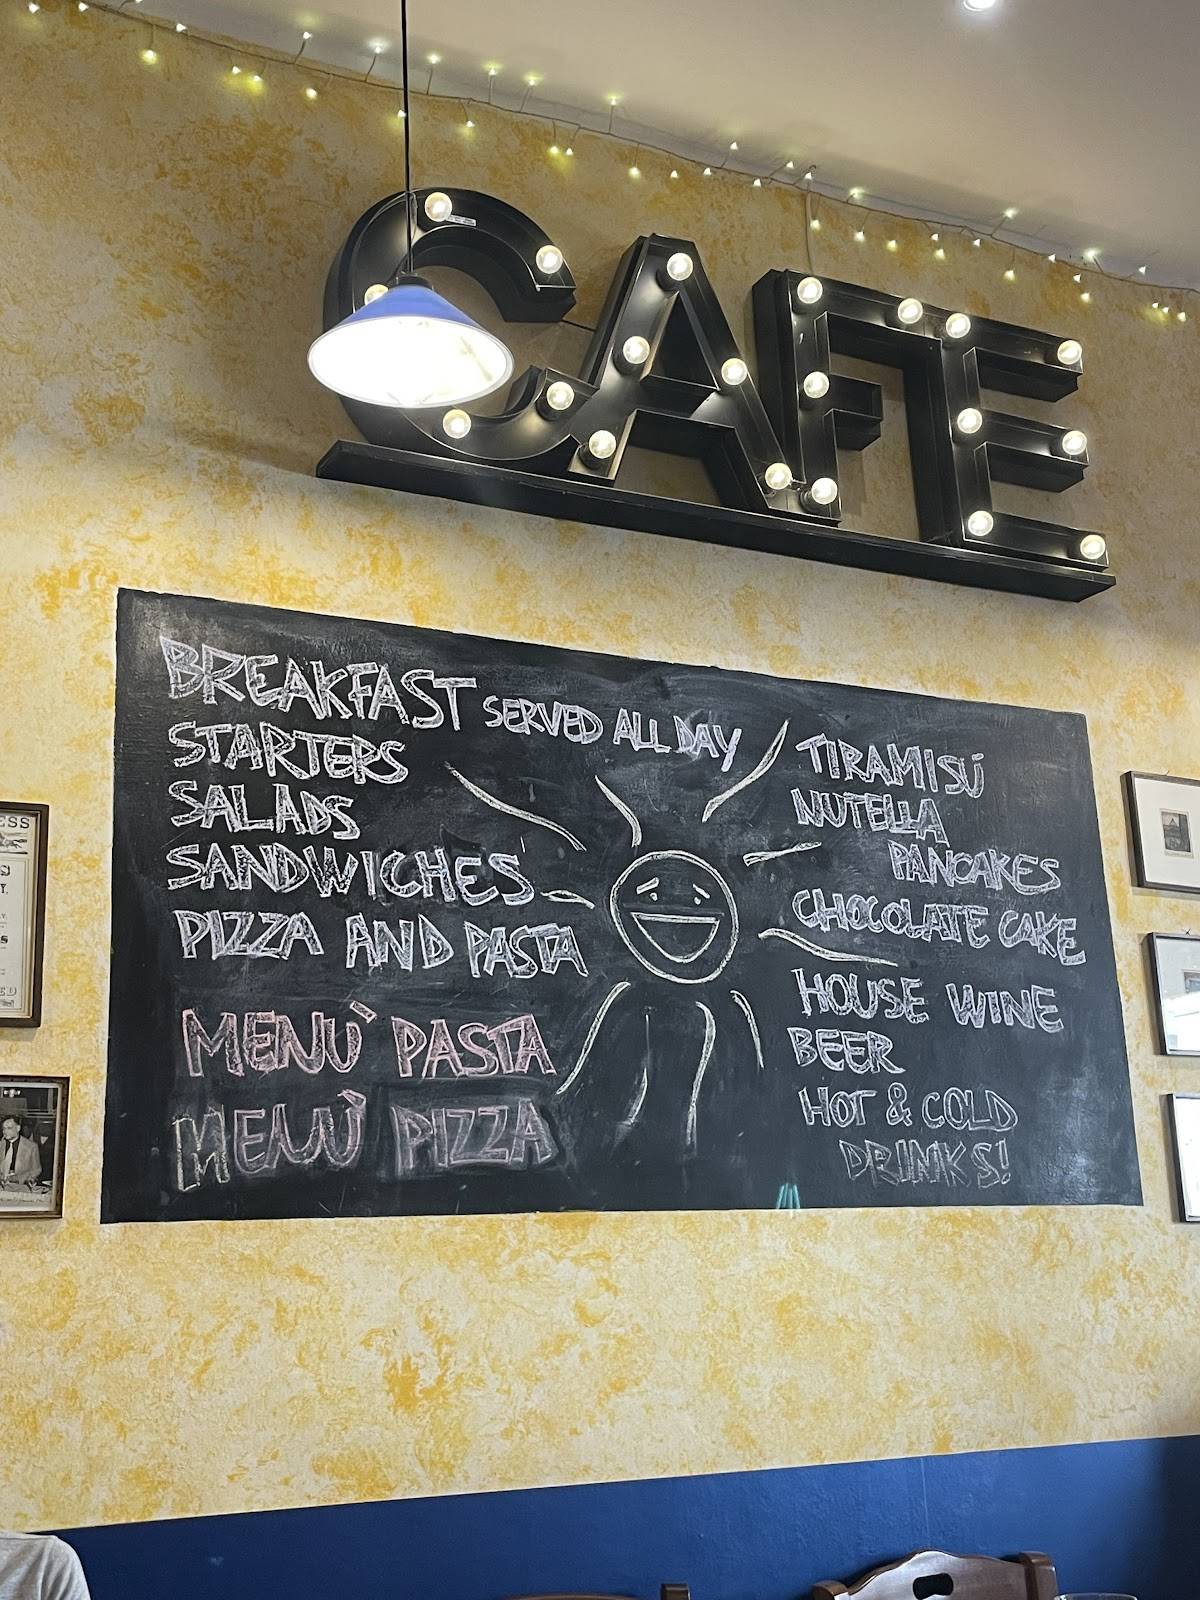 CAFE
BREAKFAST SERVED ALL DAY
STARTERS
SALADS
SANDWICHES
PIZZA AND PASTA
MENÙ PASTA
MENÙ PIZZA
TIRAMISÚ
NUTELLA
PANCAKES
CHOCOLATE CAKE
HOUSE WINE
BEER
HOT & COLD
DRINKS!
ESS